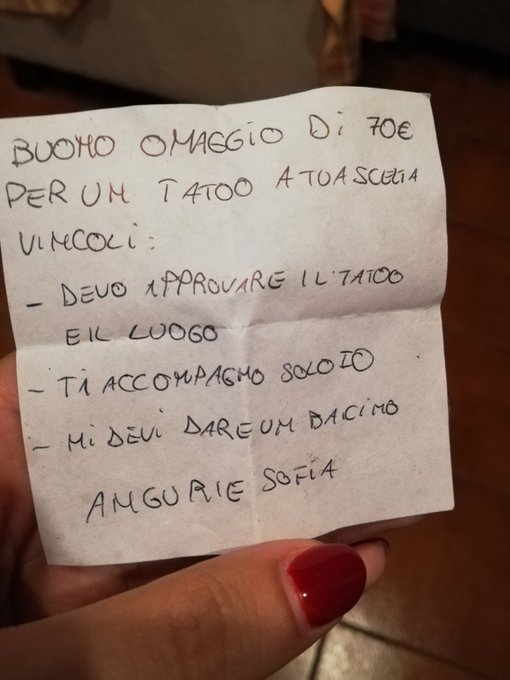 BUONO OMAGGIO Di 70€
PER UN TATOO A TUA SCELTA
VINCOLi:
- DEVO APPROVARE IL TATOO
E IL LUOGO
- Ti ACCOMPAGNO SOLO IO
- Mi DEVi DARE UN BACINO
ANGURIE SOFiA